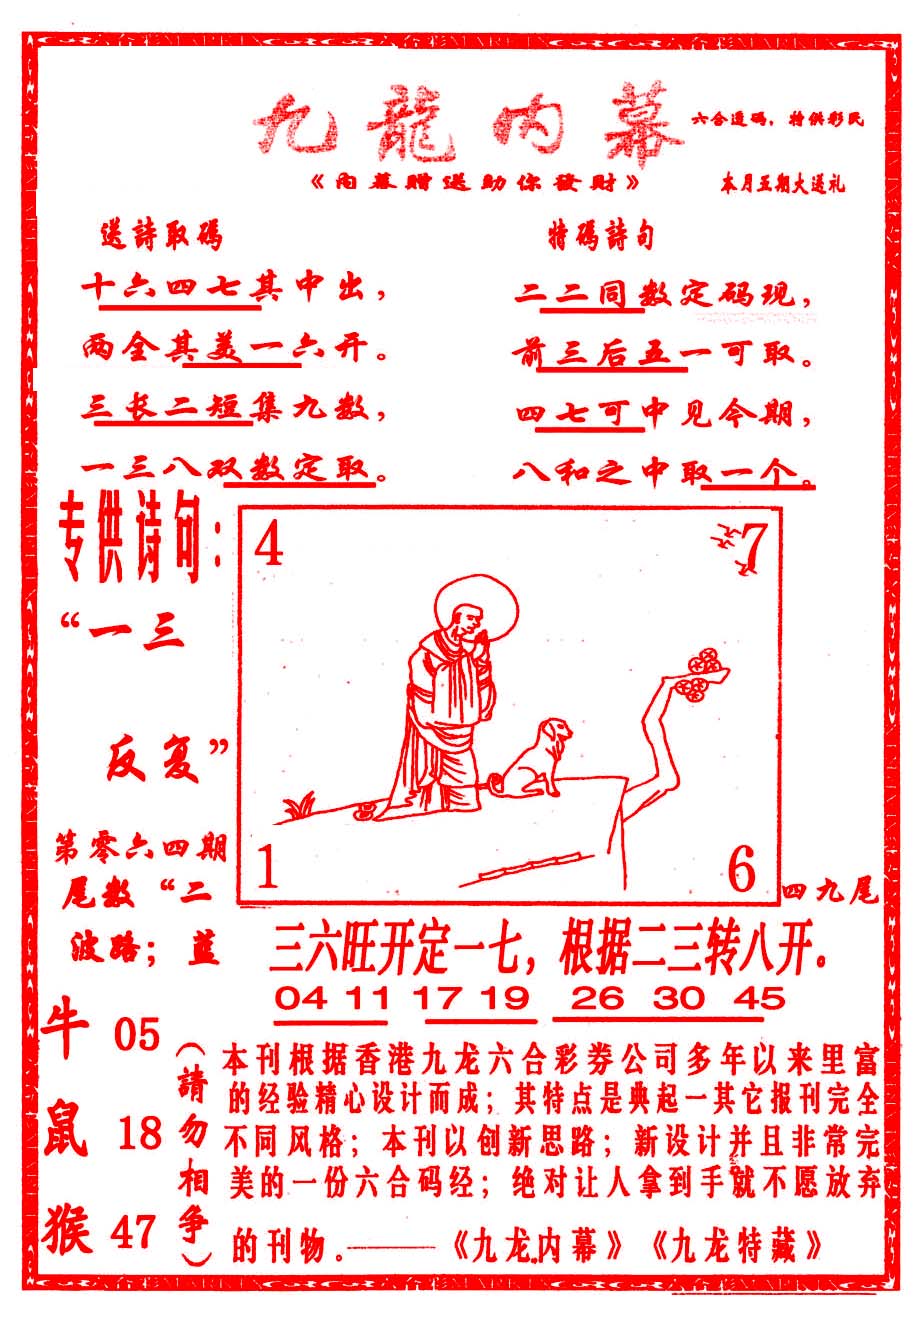 九龍内幕
六合透码，特供彩民
《内幕赠送助你發财》
本月五期大送礼
送詩取碼
十六四七其中出，
两全其美一六开。
三长二短集九数，
一三八双数定取。
特碼詩句
二二同数定码现，
前三后五一可取。
四七可中见今期，
八和之中取一个。
专供诗句：
“一三
反复”
4
7
1
6
第零六四期
尾数“二
四九尾
波路；蓝
三六旺开定一七，根据二三转八开。
04 11 17 19 26 30 45
牛 05
鼠 18
猴 47
（請勿相争）
本刊根据香港九龙六合彩券公司多年以来里富
的经验精心设计而成；其特点是典起一其它报刊完全
不同风格；本刊以创新思路；新设计并且非常完
美的一份六合码经；绝对让人拿到手就不愿放弃
的刊物。——《九龙内幕》《九龙特藏》